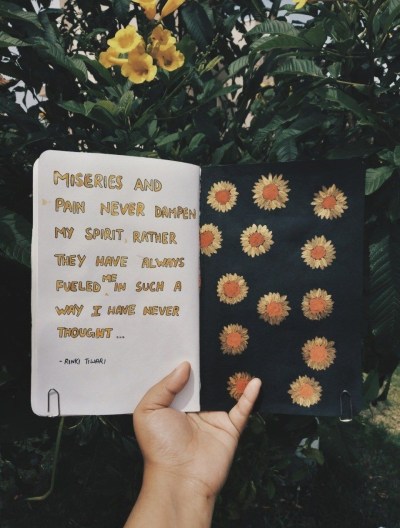 MISERIES AND
PAIN NEVER DAMPEN
MY SPIRIT, RATHER
THEY HAVE ALWAYS
FUELED ME IN SUCH A
WAY I HAVE NEVER
THOUGHT...
- RINKI TILWANI